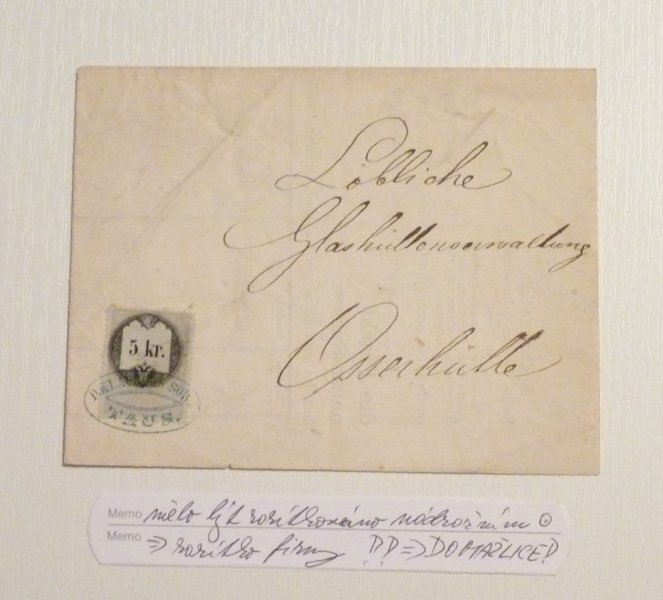 Löbliche
Glashüttenverwaltung
Osserhütte
5 kr.
TAUS.
Memo mělo být razítkováno nádražním
Memo ⇒ razítko firmy ⇒ DOMAŽLICE